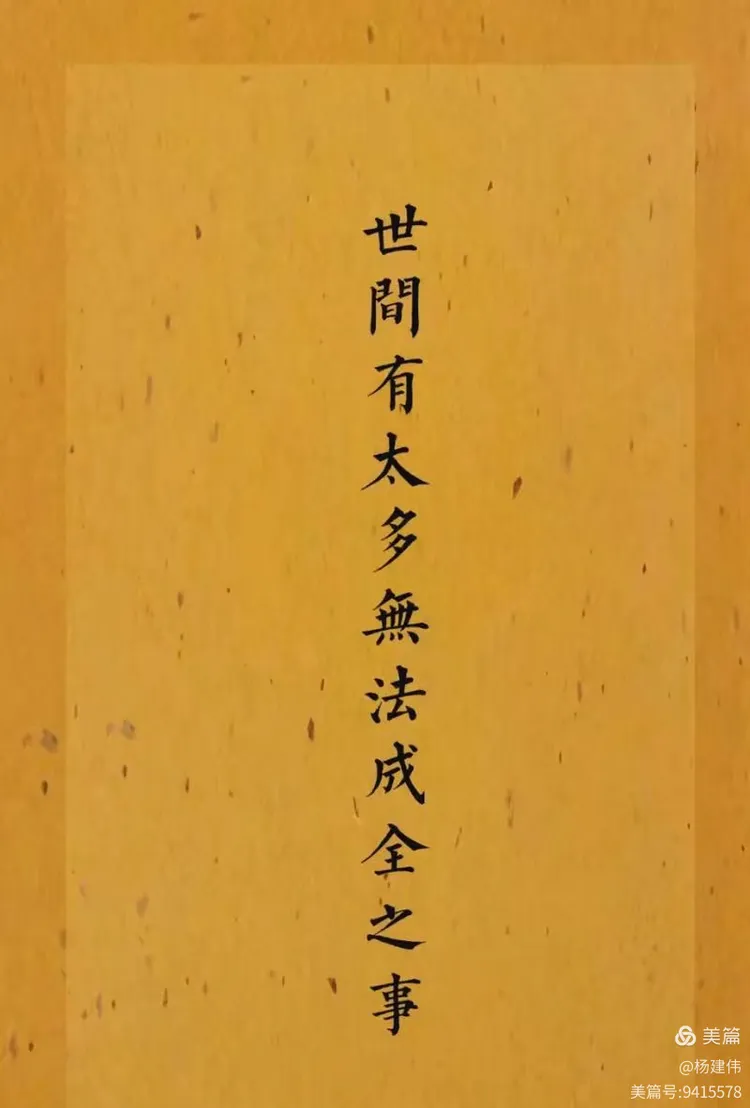 世間有太多無法成全之事
美篇
@杨建伟
美篇号:9415578